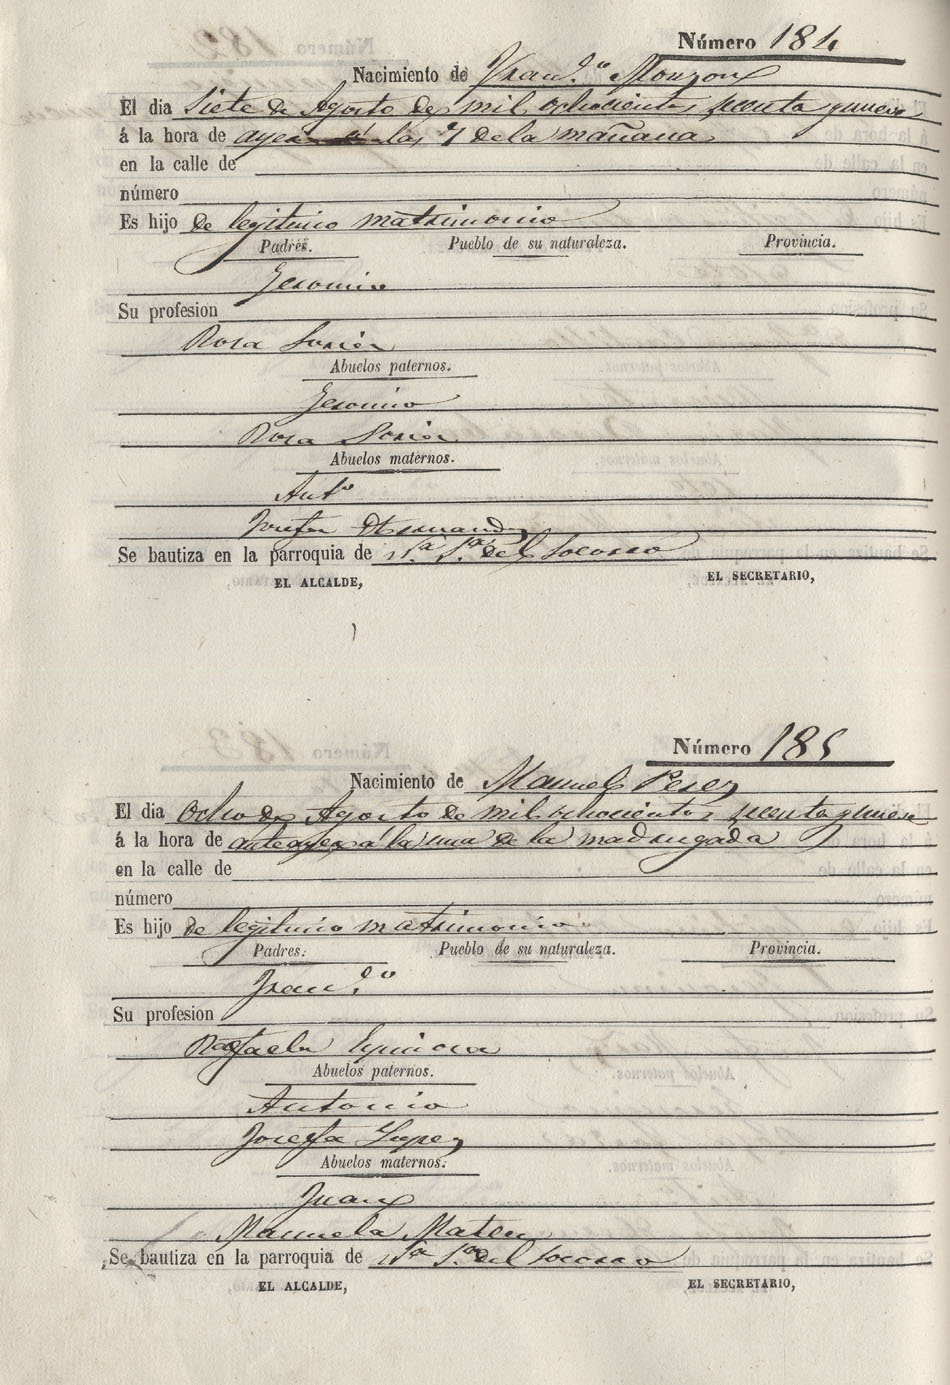 Número 184
Nacimiento de Fran.co Monzon
El dia siete de Agosto de mil ochocientos secenta y nueve
á la hora de ayer a las 7 de la mañana
en la calle de
número
Es hijo de legitimo matrimonio
Padres. Pueblo de su naturaleza. Provincia.
Geronimo
Su profesion
Rosa Soria
Abuelos paternos.
Geronimo
Rosa Soria
Abuelos maternos.
Ant.o
Josefa Hernandez
Se bautiza en la parroquia de N.a S.a del Socorro
EL ALCALDE, EL SECRETARIO,
Número 185
Nacimiento de Manuel Perez
El dia ocho de Agosto de mil ochocientos secenta y nueve
á la hora de anteayer a la una de la madrugada
en la calle de
número
Es hijo de legitimo matrimonio
Padres. Pueblo de su naturaleza. Provincia.
Fran.co
Su profesion
Rafaela Espinosa
Abuelos paternos.
Antonio
Josefa Lopez
Abuelos maternos.
Juan
Manuela Mateu
Se bautiza en la parroquia de N.a S.a del Socorro
EL ALCALDE, EL SECRETARIO,